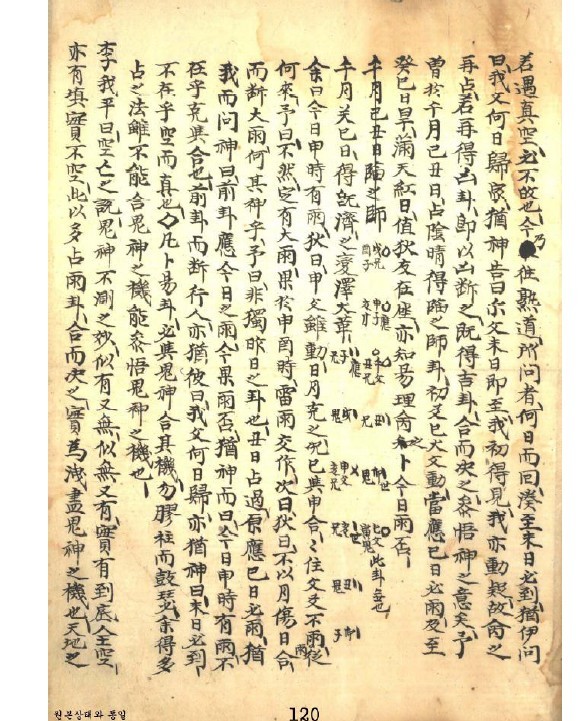 若遇真空必不故也今乃徃熟道所問者何日而回湊至未日必到猶伊問
曰我父何日歸家猶神告曰尓父未日即至我初得見我亦動疑故令之
再占若再得凶卦即以凶断之既得吉卦合而决之叅悟神之意夫予
曽於午月己丑日占陰晴得臨之師卦初爻巳火文動當應巳日必雨及至
癸巳日早滿天紅日値狄友在座亦知易理命之卜今日雨否
午月己丑日臨之師
午月癸巳日得既濟之変澤火革
余曰今日申時有雨狄曰申父雖動日月克之况巳與申合合住文爻不雨從
何來予曰不然定有大雨果於申酉時雷雨交作次日狄曰不以月傷日合
而断大雨何其神乎予曰非獨昨日之卦也丑日占過原應巳日必雨猶
我而問神曰前卦應今日之雨今果雨否猶神而曰今日申時有雨不
在乎克與合也前卦而断行人亦猶彼曰我父何日歸亦猶神曰未日必到
不在乎空而真也凡卜易卦必與鬼神合其機勿膠柱而鼓琴余得多
占之法雖不能合鬼神之機能叅悟鬼神之機也
李我平曰空亡之說鬼神不測之妙似有又無似無又有實有到底全空
亦有填實不空此以多占兩卦合而决之實爲洩盡鬼神之機也天地之
원본상태와 동일
120